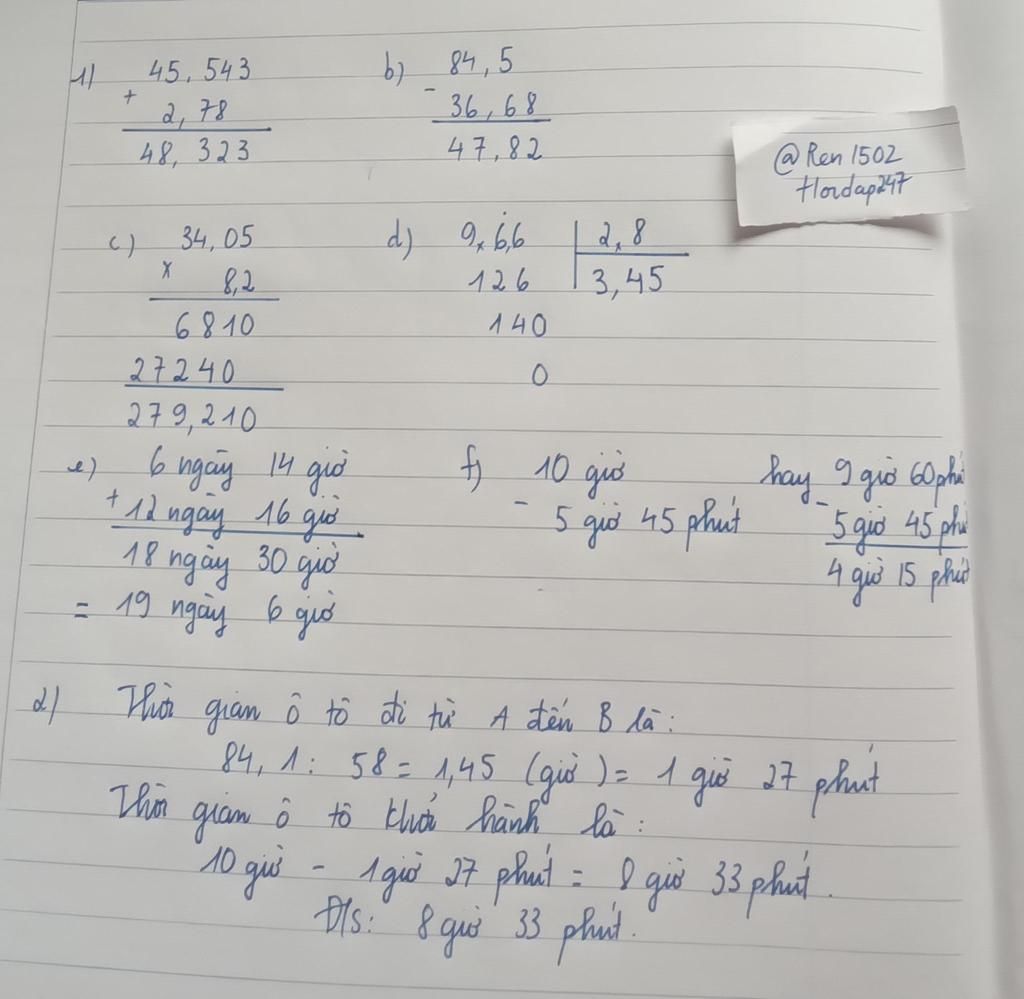 1) 45,543
+ 2,78
48,323
b) 84,5
- 36,68
47,82
@Ren1502
Hordap247
c) 34,05
x 8,2
6810
27240
279,210
d) 9,66 | 2,8
126 | 3,45
140
0
e) 6 ngày 14 giờ
+ 12 ngày 16 giờ
18 ngày 30 giờ
= 19 ngày 6 giờ
f) 10 giờ
- 5 giờ 45 phút
hay 9 giờ 60 phú
- 5 giờ 45 phú
4 giờ 15 phút
2) Thời gian ô tô đi từ A đến B là:
84,1 : 58 = 1,45 (giờ) = 1 giờ 27 phút
Thời gian ô tô khởi hành là:
10 giờ - 1 giờ 27 phút = 8 giờ 33 phút.
Đ/s: 8 giờ 33 phút.